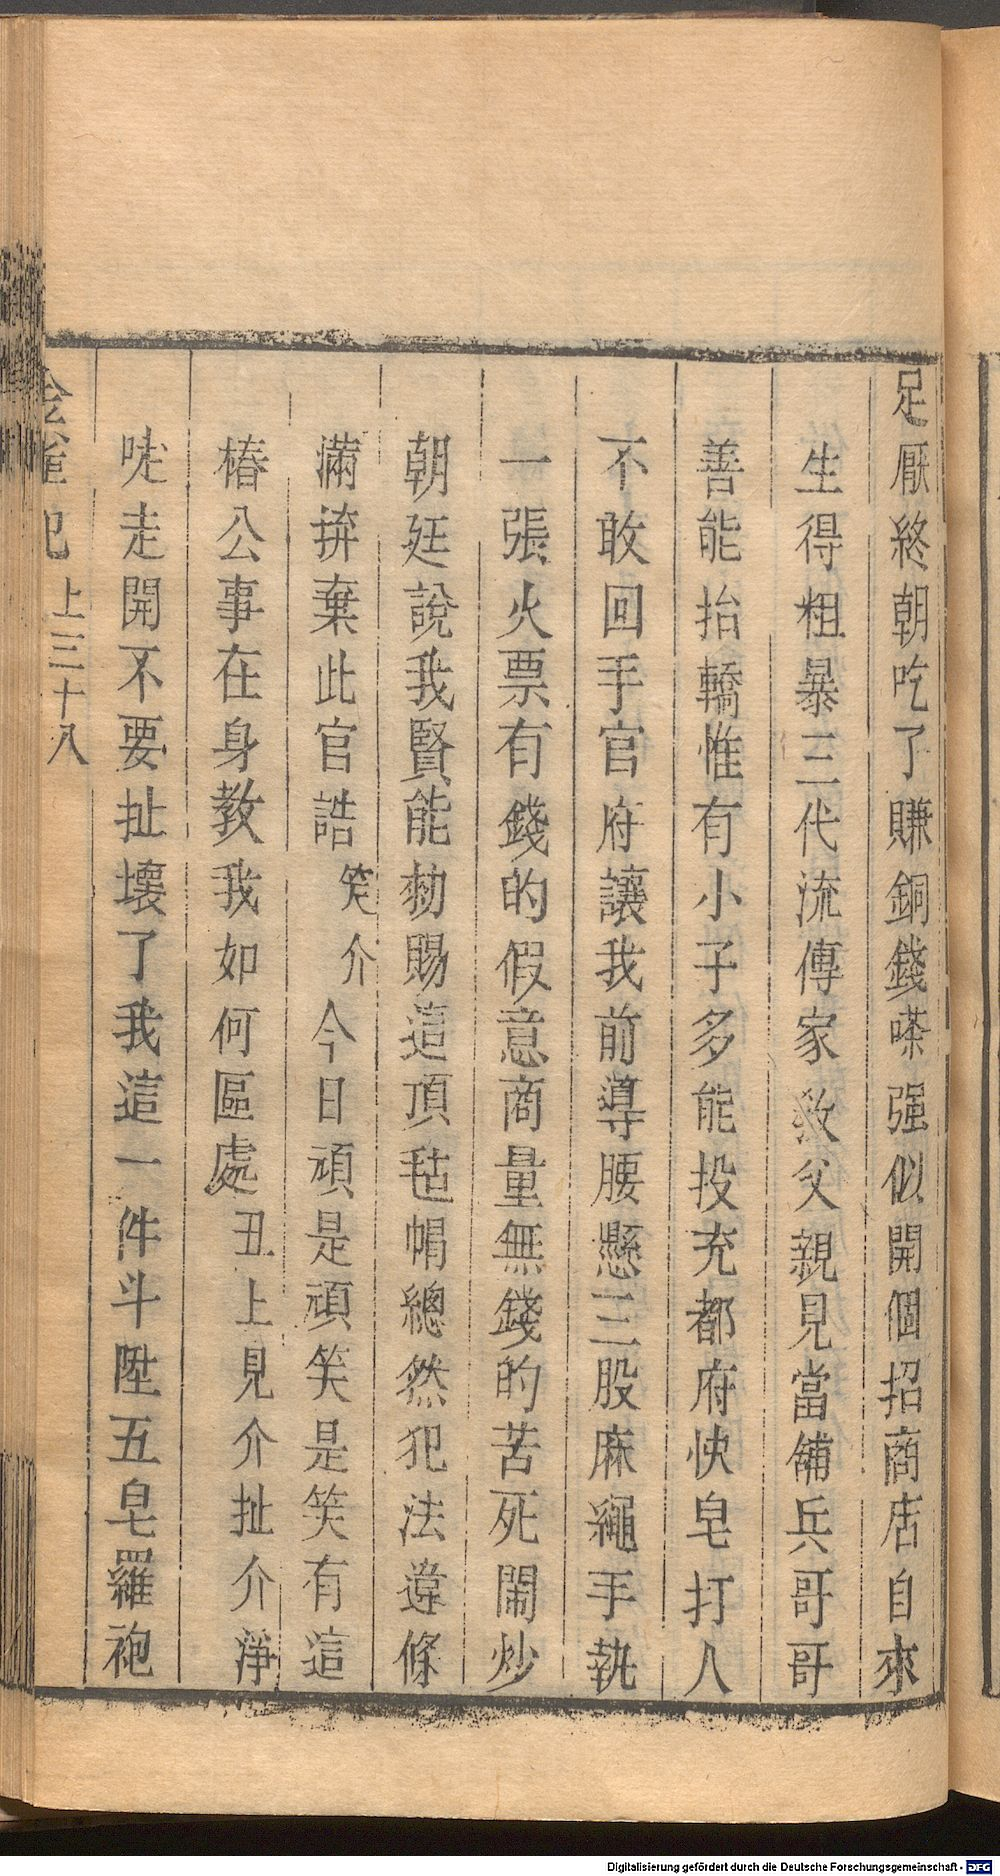 足厭終朝吃了賺銅錢嗏强似開個招商店自來
生得粗暴三代流傳家教父親見當舖兵哥哥
善能抬轎惟有小子多能投充都府快皂打人
不敢回手官府讓我前導腰懸三股麻繩手執
一張火票有錢的假意商量無錢的苦死鬧炒
朝廷說我賢能勑賜這頂毡帽總然犯法違條
滿拚棄此官誥笑介今日頑是頑笑是笑有這
樁公事在身教我如何區處丑上見介扯介淨
唗走開不要扯壞了我這一件斗陞五皂羅袍
上三十八
Digitalisierung gefördert durch die Deutsche Forschungsgemeinschaft - DFG